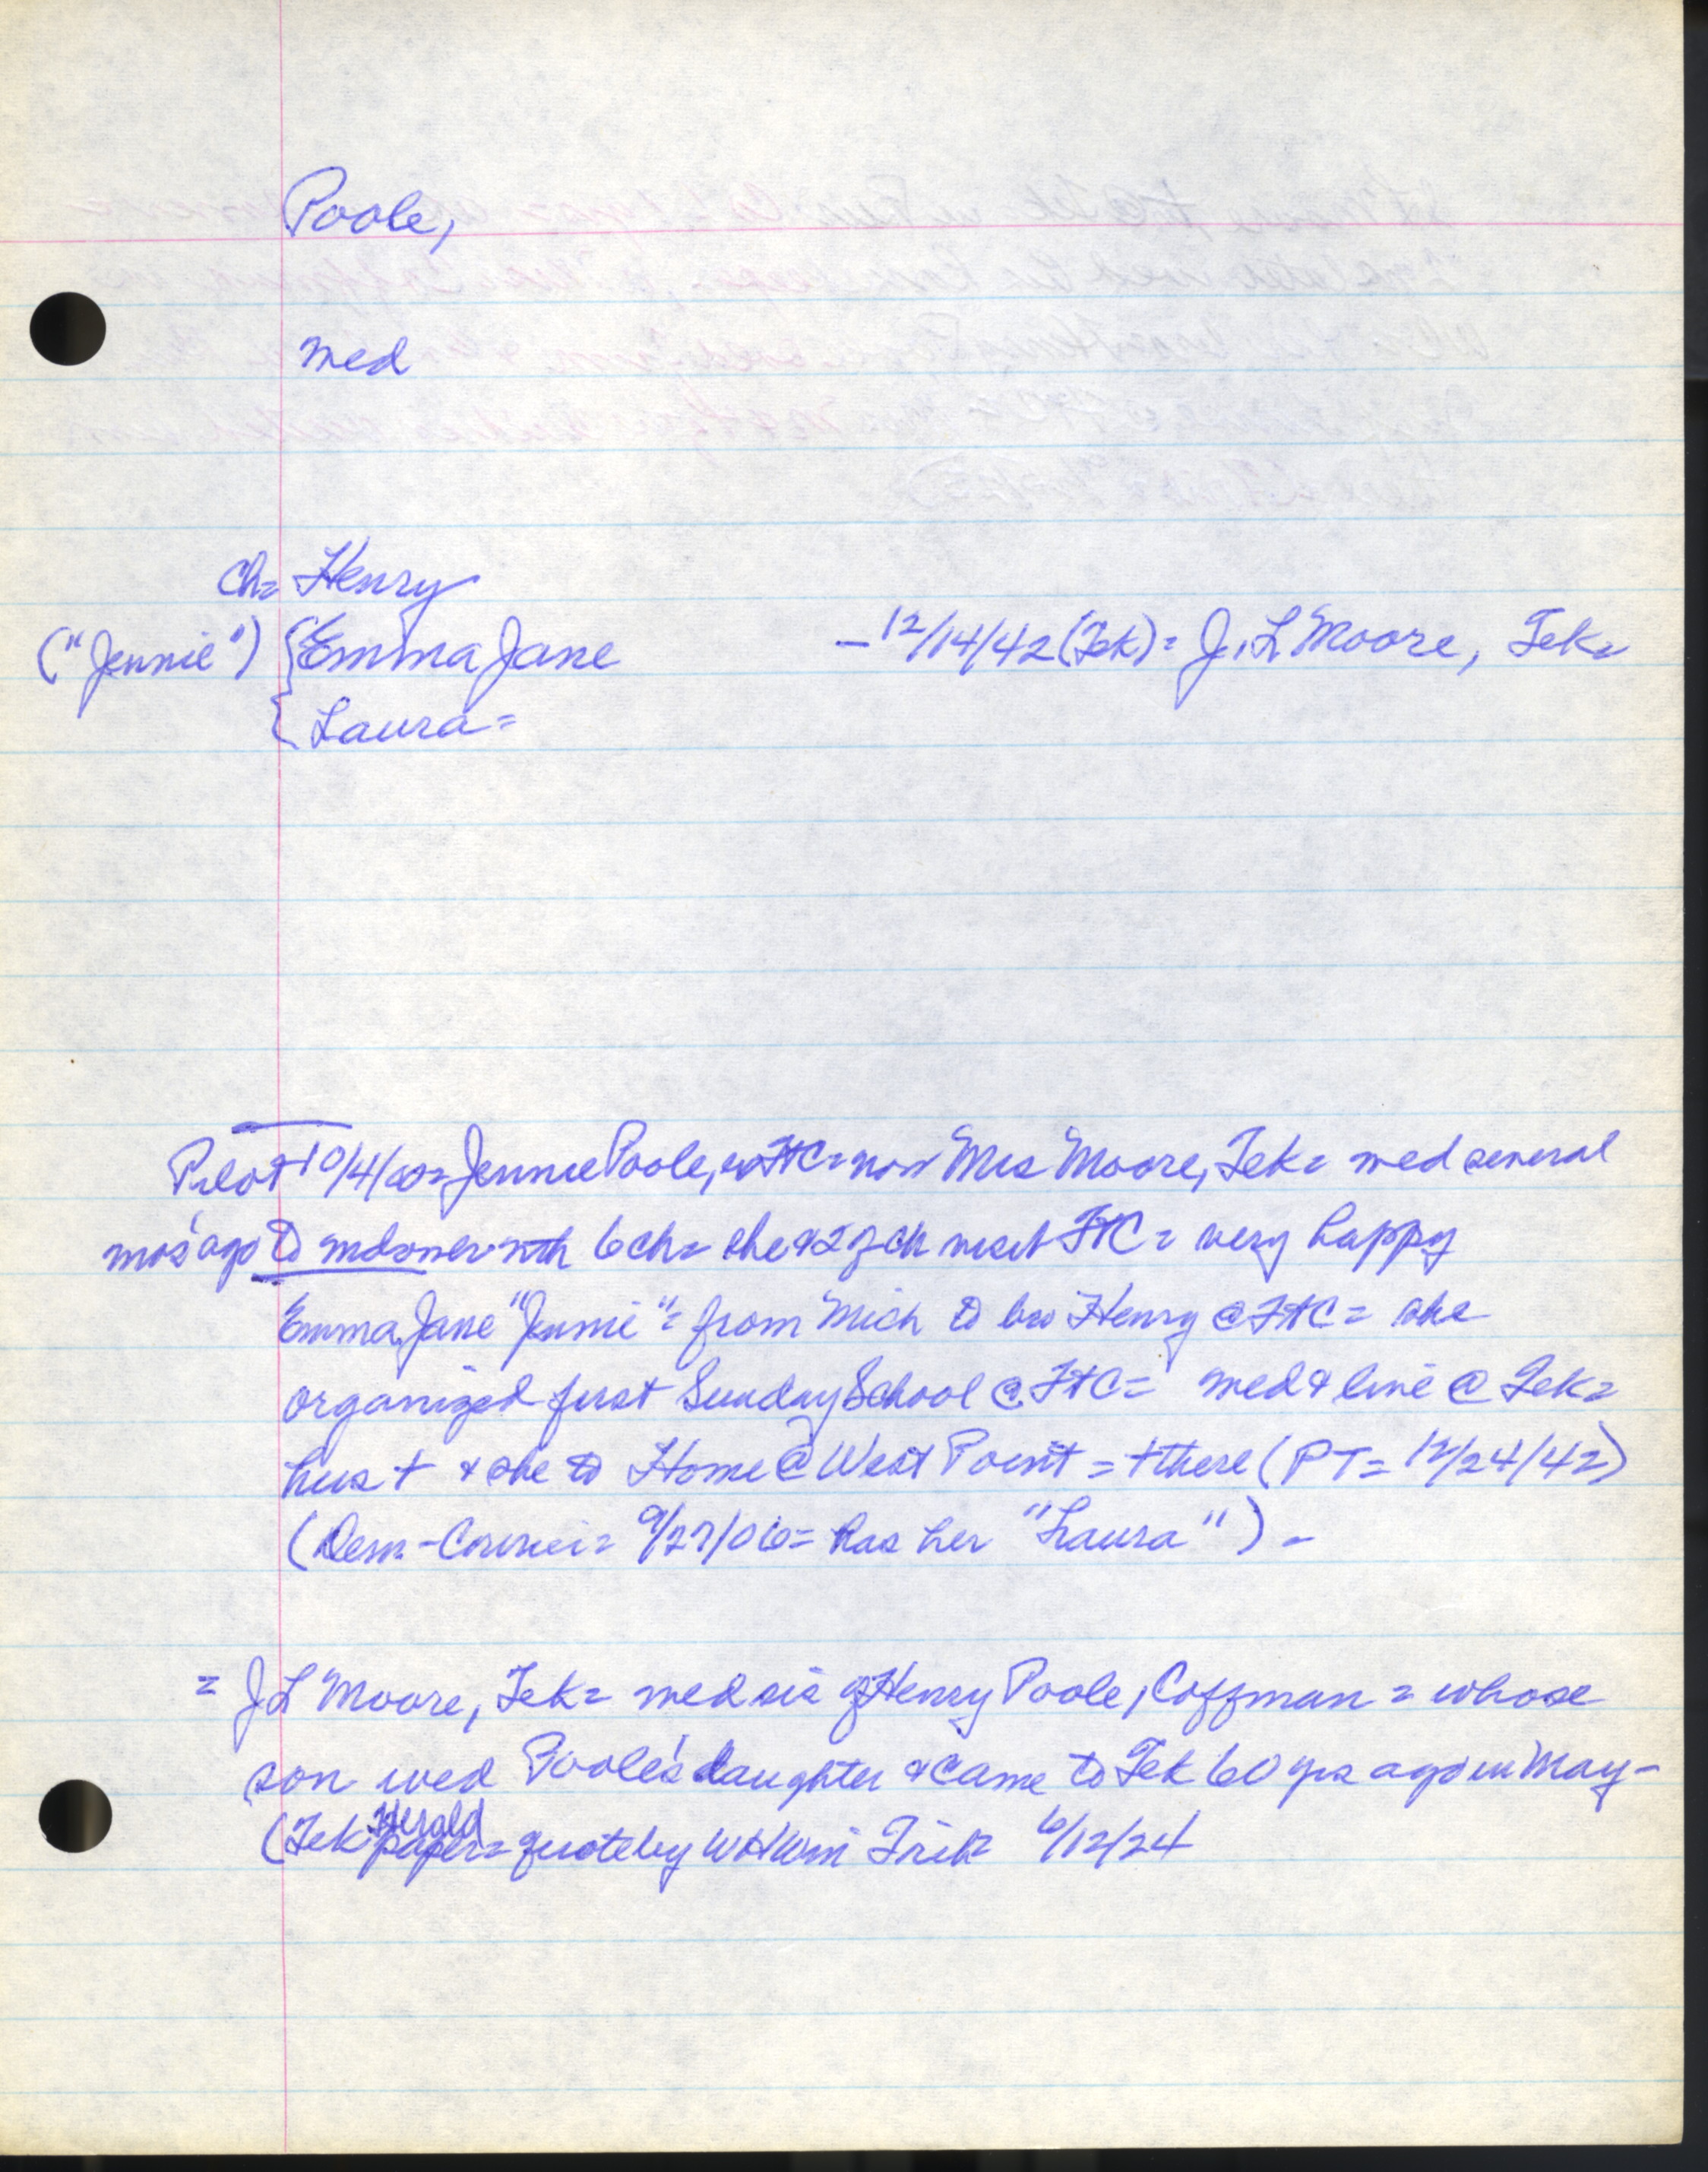 Poole,
med
ch= Henry
("Jennie") { Emma Jane -12/14/42 (Tek)= J. L Moore, Tek=
{ Laura=
Pilot 10/4/00= Jennie Poole, ex FtC= now Mrs Moore, Tek= med several
mos' ago to mdsmer with 6 ch= she & 2 of ch visit FtC= very happy
Emma Jane "Jennie"= from Mich to bro Henry @ FtC= she
organized first Sunday School @ FtC= med & live @ Tek=
hus + & she to Home @ West Point = + there (PT= 12/24/42)
(Dem-Courier= 9/27/06= has her "Laura") -
= J L Moore, Tek= med sis of Henry Poole, Coffman = whose
son wed Poole's daughter & came to Tek 60 yrs ago in May-
Herald
(Tek paper= quote by 6/12/24